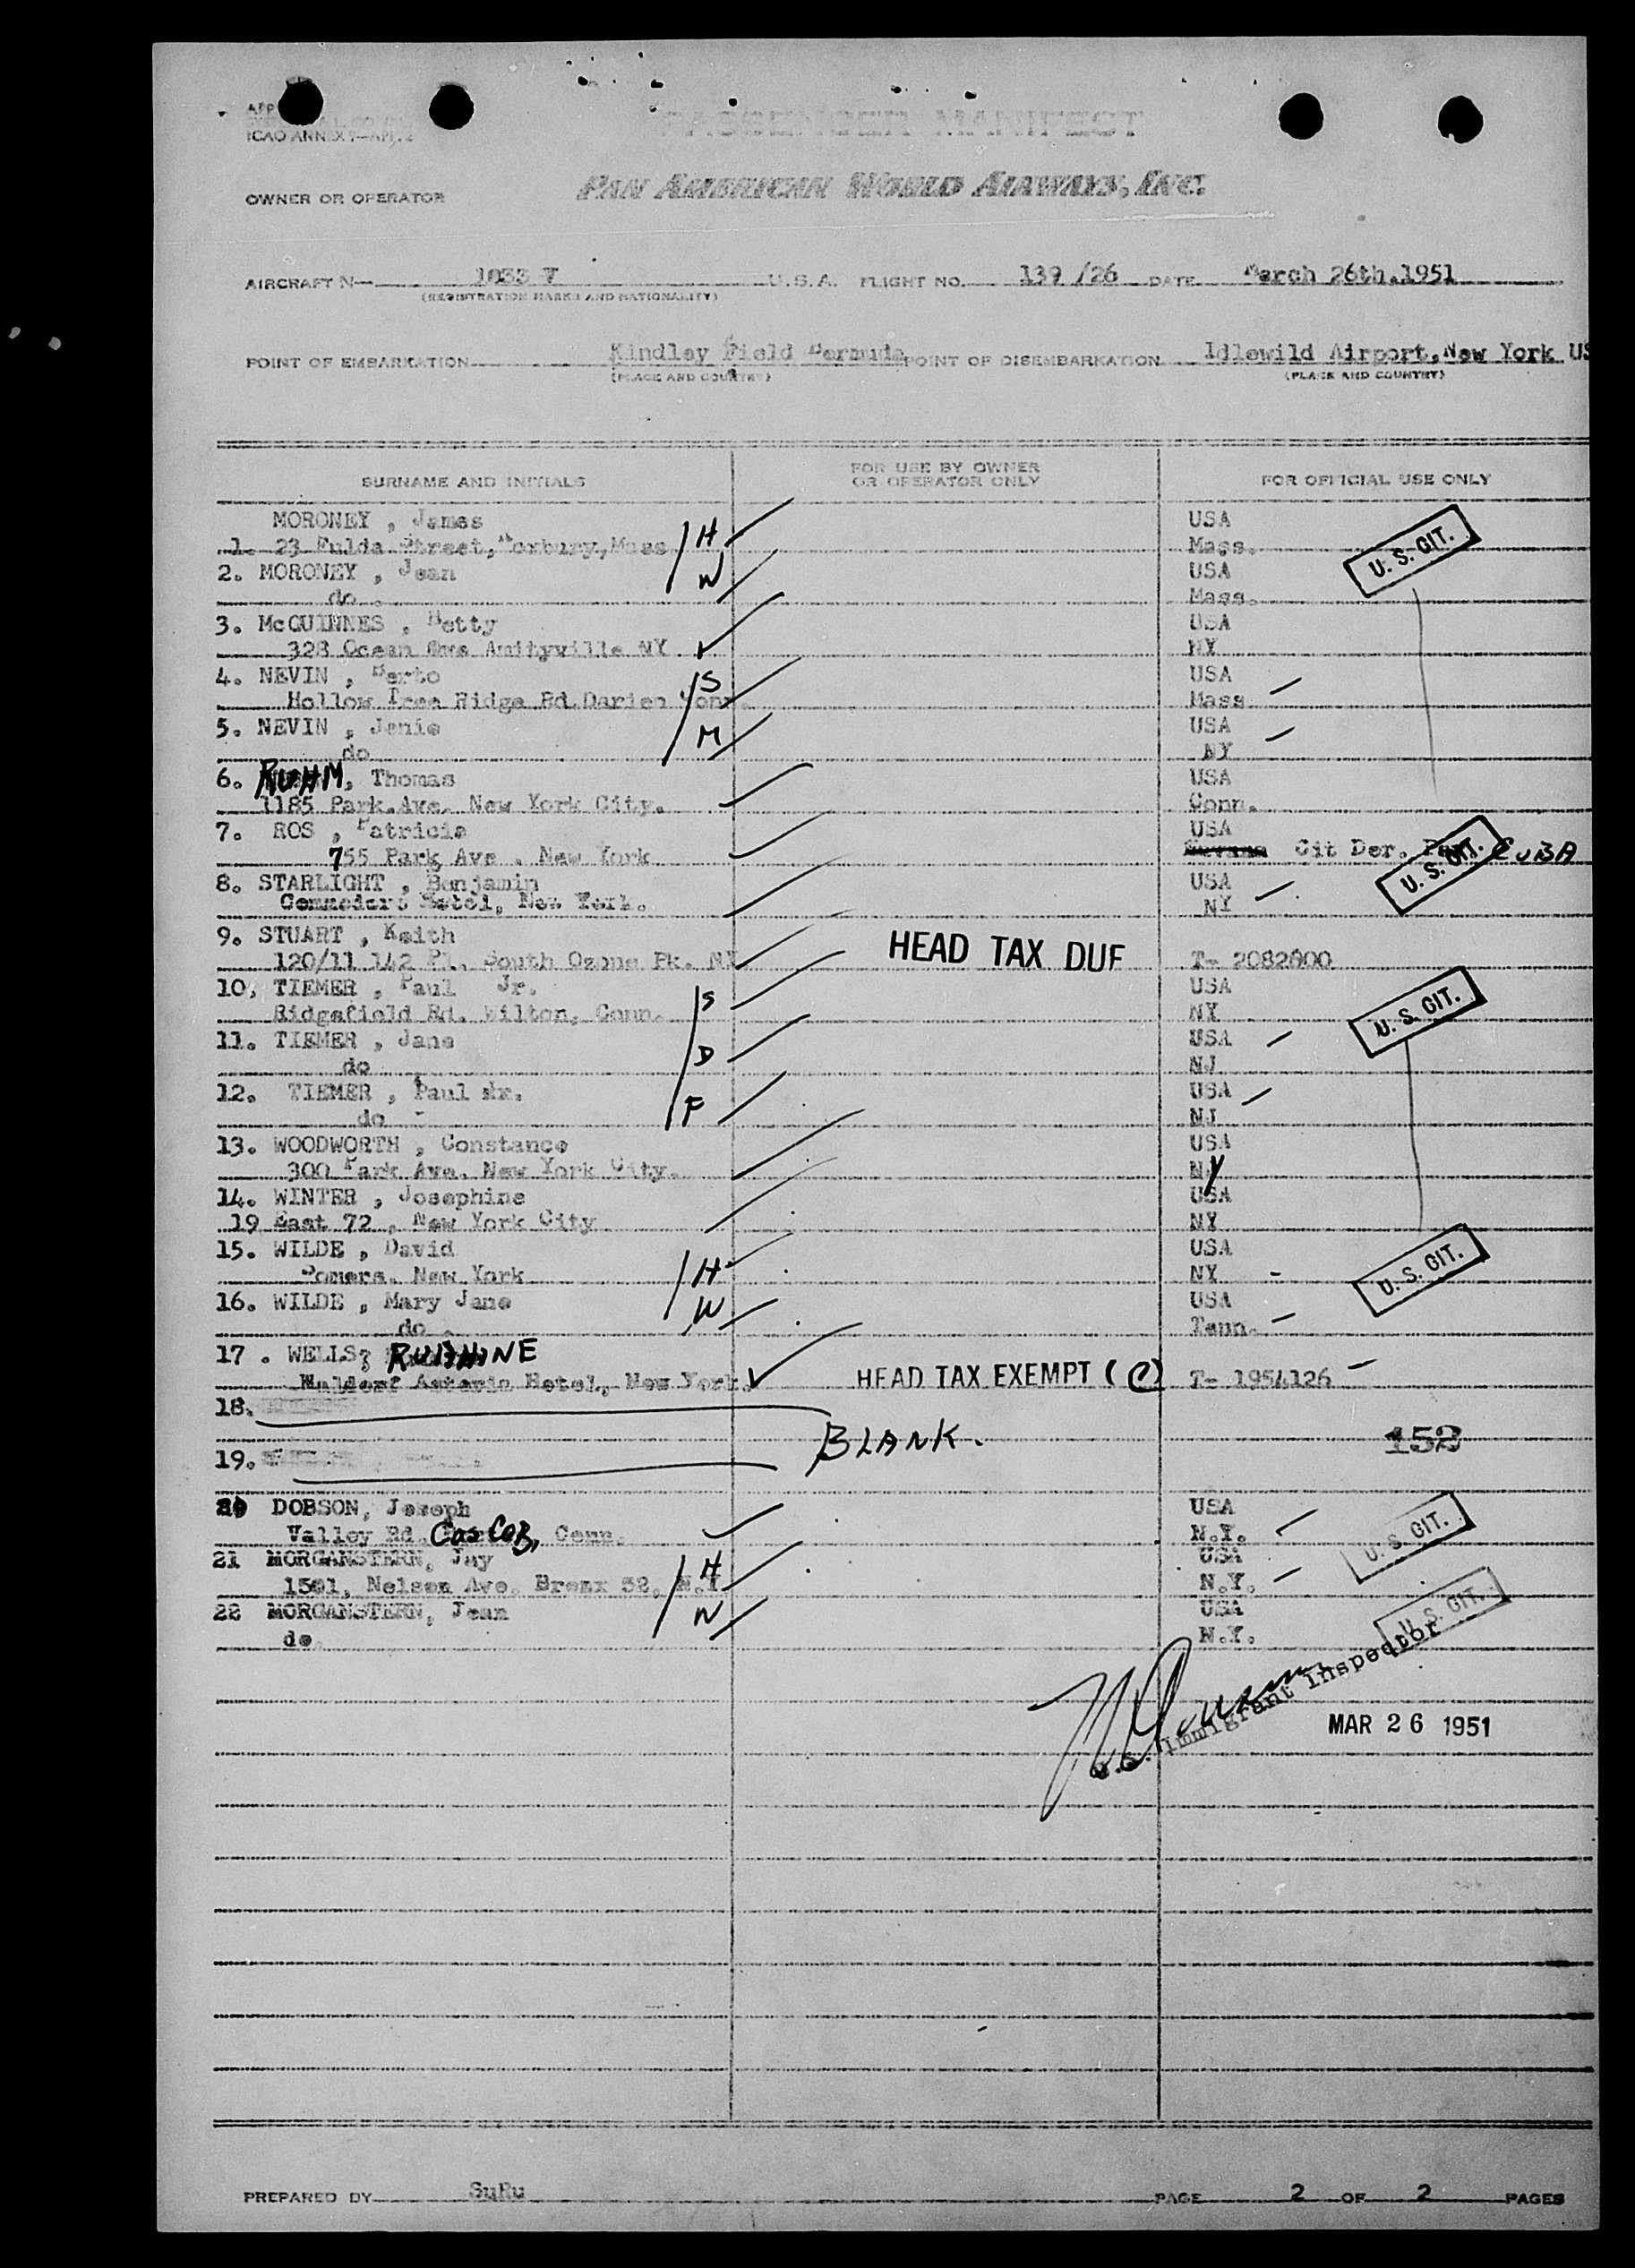 ICAO ANNEX 9—APP. 2
PASSENGER MANIFEST
OWNER OR OPERATOR PAN AMERICAN WORLD AIRWAYS, INC.
AIRCRAFT N— 1033 V U.S.A. FLIGHT NO. 139 /26 DATE March 26th.1951
(REGISTRATION MARKS AND NATIONALITY)
POINT OF EMBARKATION Kindley Field Bermuda POINT OF DISEMBARKATION Idlewild Airport, New York US
(PLACE AND COUNTRY) (PLACE AND COUNTRY)
SURNAME AND INITIALS FOR USE BY OWNER OR OPERATOR ONLY FOR OFFICIAL USE ONLY
MORONEY , James USA
1. 23 Fulda Street, Roxbury, Mass H Mass. U. S. CIT.
2. MORONEY , Jean W USA
do . Mass.
3. McGUINNES , Betty USA
328 Ocean Ave Amityville NY NY
4. NEVIN , S USA
Hollow Tree Ridge Rd. Darien Conn. Mass
5. NEVIN , Janie M USA
do NY
6. RUHM, Thomas USA
1185 Park Ave. New York City. Conn.
7. ROS , Patricia USA
755 Park Ave . New York Cit Der. CUBA
8. STARLIGHT , Benjamin USA U. S. CIT.
Commodore Hotel, New York. NY
9. STUART , Keith HEAD TAX DUE
120/11 142 Pl. South Ozone Pk. NY T- 2082600
10, TIEMER , Paul Jr. S USA
Ridgefield Rd. Wilton, Conn. NY U. S. CIT.
11. TIEMER , Jane D USA
do NJ
12. TIEMER , Paul sr. F USA
do NJ
13. WOODWORTH , Constance USA
300 Park Ave. New York City. NY
14. WINTER , Josephine USA
19 East 72 , New York City NY
15. WILDE , David H USA
Somers. New York NY U. S. CIT.
16. WILDE , Mary Jane W USA
do . Tenn.
17 . WELLS,
Waldorf Astoria Hotel, New York. HEAD TAX EXEMPT (C) T- 1954126
18.
BLANK. 152
19.
20 DOBSON, Joseph USA
Valley Rd. Cos Cob, Conn. N.Y. U. S. CIT.
21 MORGANSTERN, Jay H USA
1501, Nelson Ave. Bronx 52, N.Y. N.Y.
22 MORGANSTERN, Jean W USA U. S. CIT.
do. N.Y.
U.S. Immigrant Inspector
MAR 26 1951
PREPARED BY SuRu PAGE 2 OF 2 PAGES